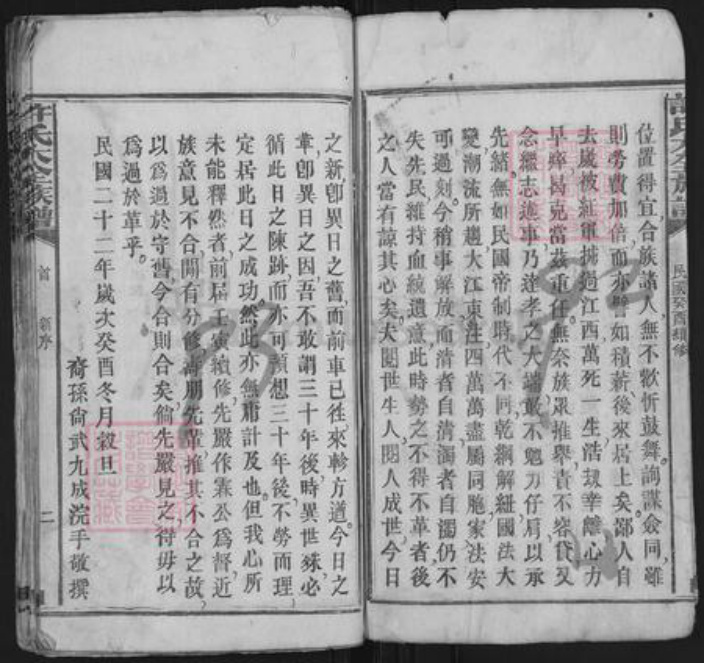 位置得宜合族諸人無不歡忻鼓舞詢謀僉同雖
則勞費加倍而亦譬如積薪後來居上矣鄙人自
去歲被紅軍擄過江西萬死一生浩刼幸離心力
早瘁曷克當茲重任無奈族眾推舉責不容貸又
念繼志述事乃達孝之大端敢不勉力仔肩以承
先緒無如民國帝制時代不同乾綱解紐國法大
變潮流所趨大江東注四萬萬盡屬同胞家法安
可過刻今稍事解放而清者自清濁者自濁仍不
失先民維持血統遺意此時勢之不得不革者後
之人當有諒其心矣夫閱世生人閱人成世今日
民國癸酉續修
之新卽異日之舊而前車已徃來軫方遒今日之
革卽異日之因吾不敢謂三十年後時異世殊必
循此日之陳跡而亦可預想三十年後不勞而理
定居此日之成功然此亦無庸計及也但我心所
未能釋然者前屆壬寅續修先嚴作霖公爲督近
族意見不合鬮有分修高朋先輩推其不合之故
以爲過於守舊今合則合矣倘先嚴見之得毋以
爲過於革乎。
民國二十二年歲次癸酉冬月穀旦
裔孫尙武九成浣手敬撰
許氏大全族譜
首
新序
二